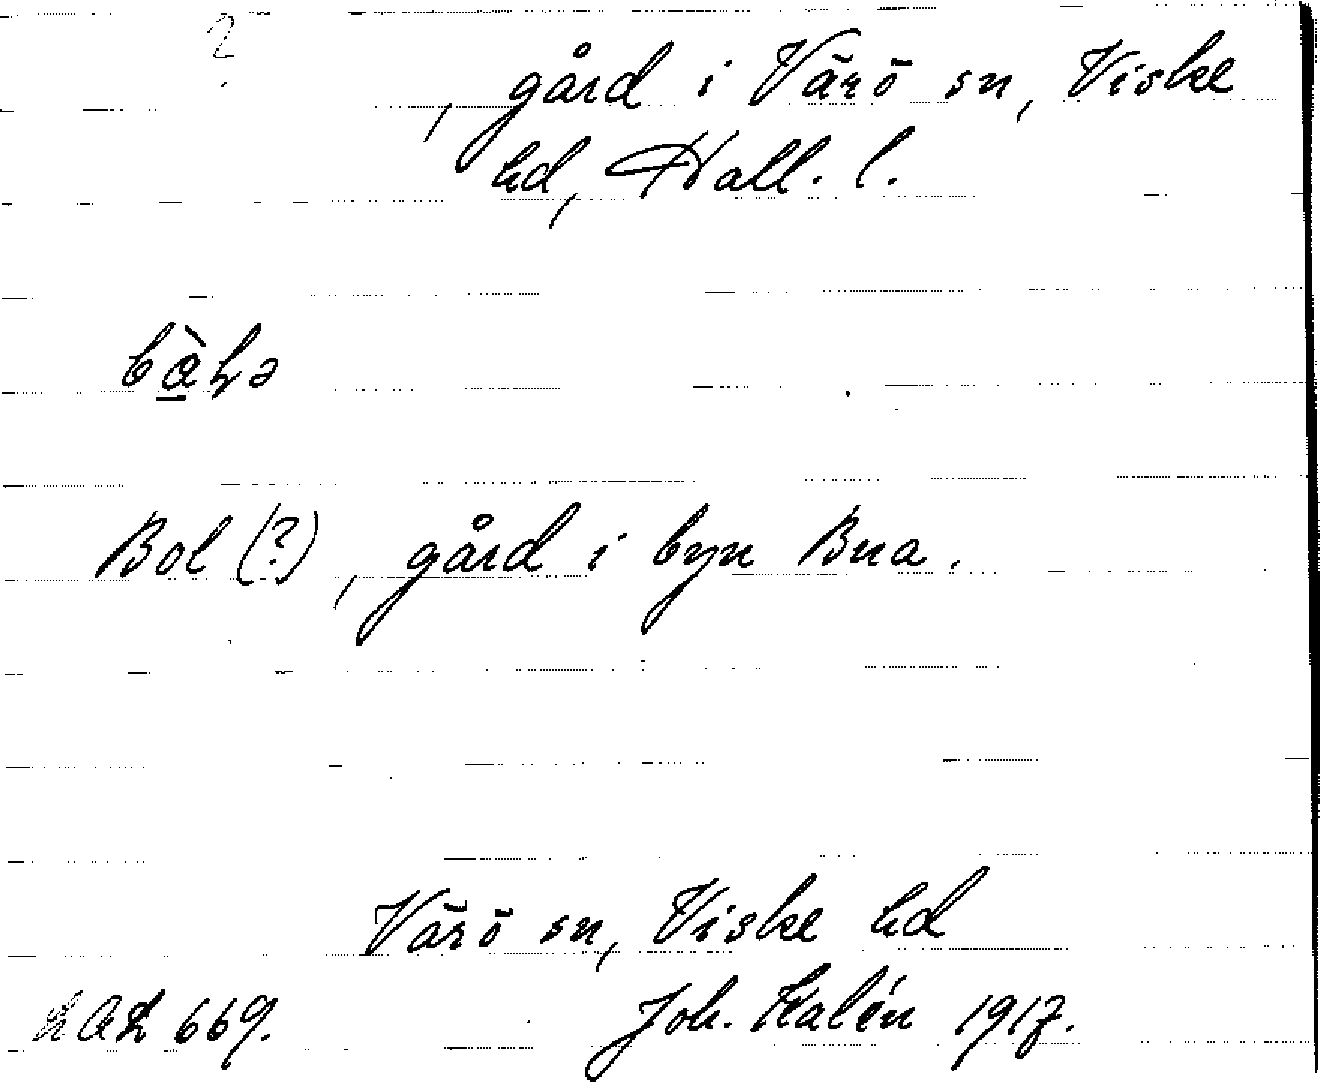 ?
, gård i Värö sn, Viske
hd, Hall. l.
Bol (?), gård i byn Bua.
Värö sn, Viske hd
LAL 669. Joh. Kalén 1917.